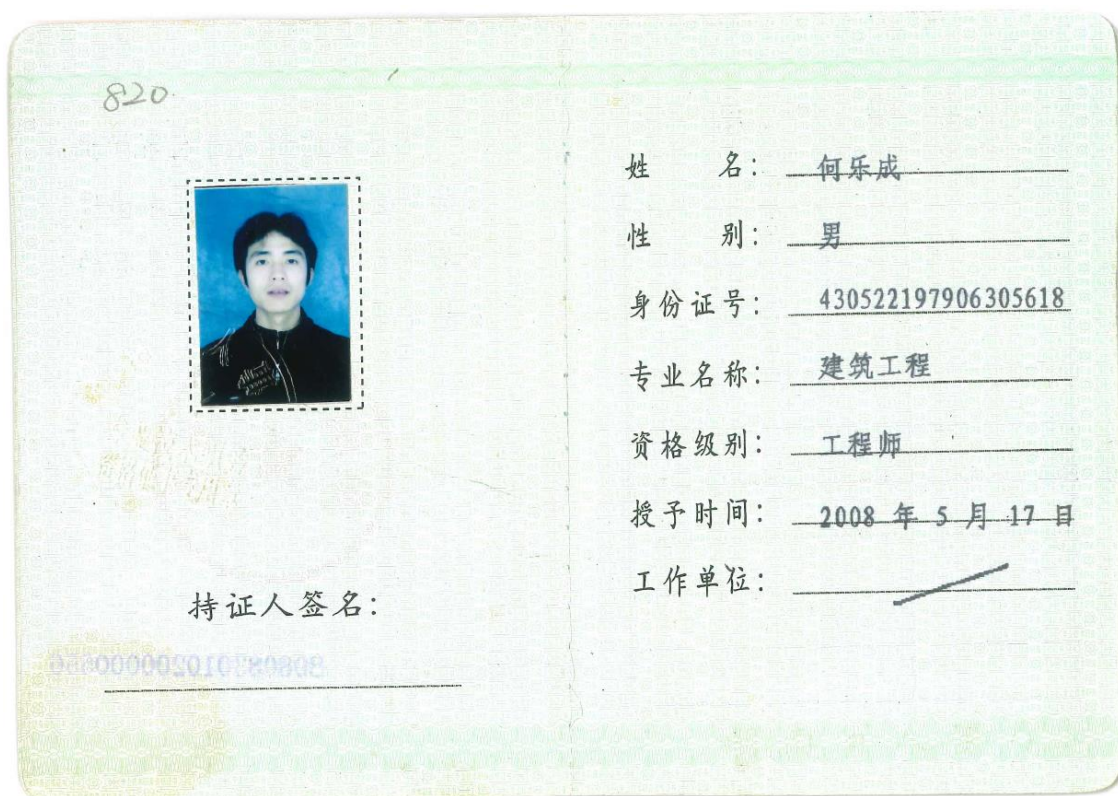 820
姓 名： 何乐成
性 别： 男
身份证号： 430522197906305618
专业名称： 建筑工程
资格级别： 工程师
授予时间： 2008 年 5 月 17 日
工作单位：
持证人签名：